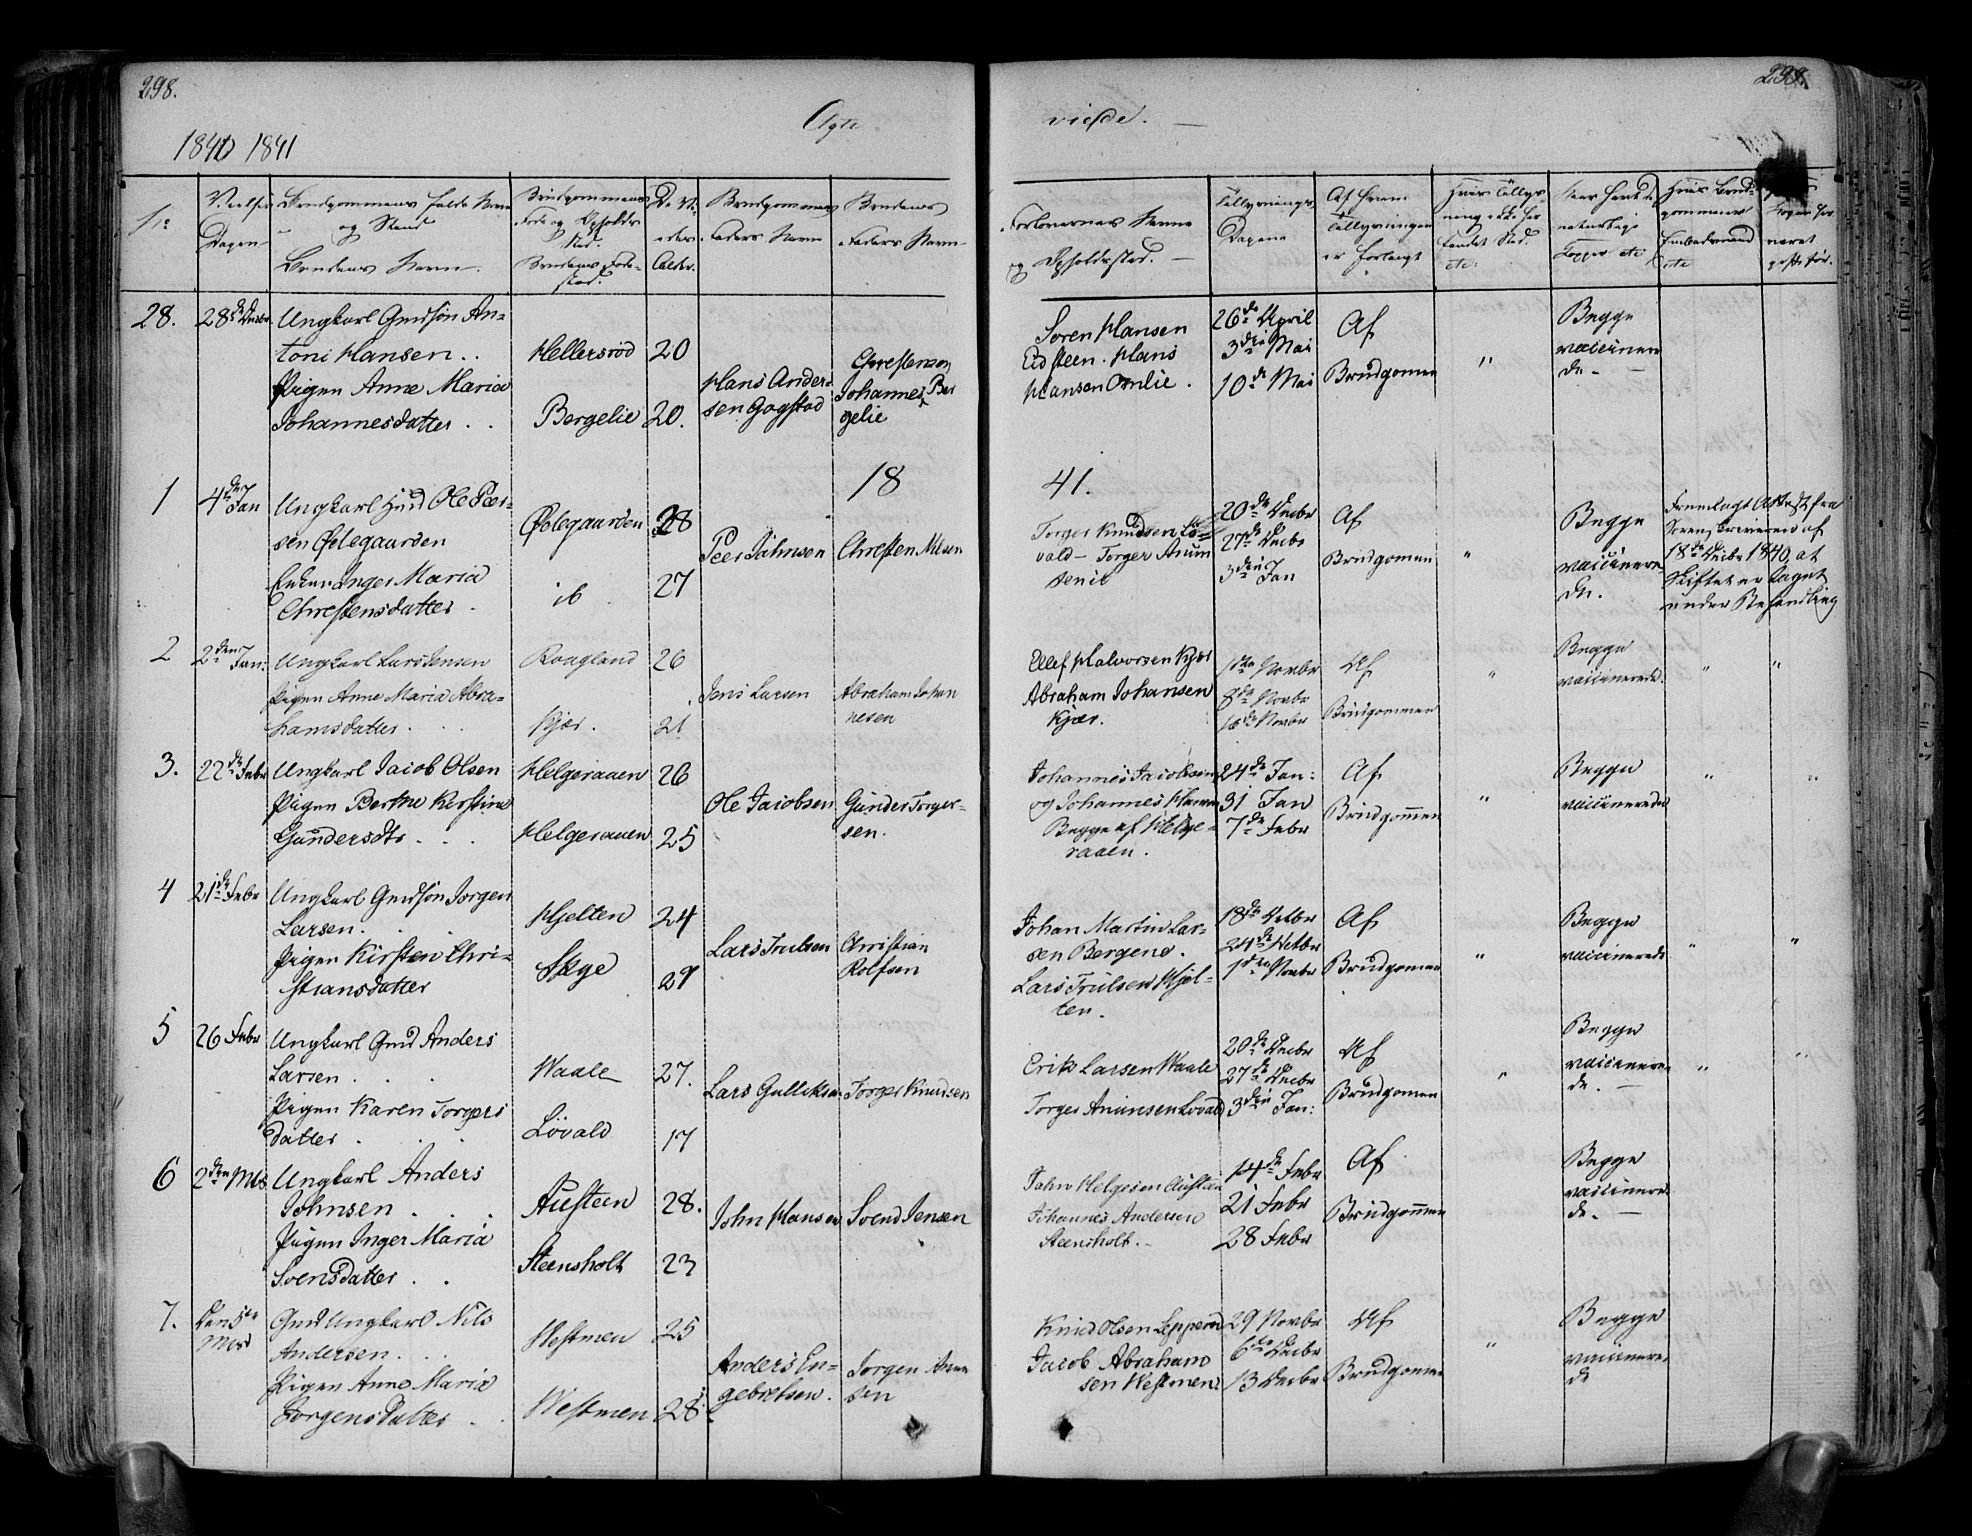 298.
298.
Ægte
viede. —
1840 1841
No
Vielses Dagen
Brudgommens fulde Navn og Stand
Brudens Navn.
Brudgommens Føde og Opholds Sted.
Brudens Fødested.
Alder.
Brudgommens Faders Navn
Brudens Faders Navn
Forlovernes Navne og Opholdssted. —
Tillysnings Dagene
Af hvem Tillysningen er forlangt
28. 28de Decbr
Ungkarl Gmdsøn An-
toni Hansen . .
Pigen Anne Maria
Johannesdatter . .
Hellersrød 20
Bergelie 20.
Hans Ander-
sen Gogstad
Christensen
Johannes Ber
gelie
Soren Hansen
Eidsteen. Hans
Hansen Omlie .
26de April
3die Mai
10de Mai
Af
Brudgomen
"
Begge
vaccinere
de —
18 41.
1 4de Jan
Ungkarl Husd Ole Peer-
sen Ødegaarden
Enken Inger Maria
Chrestensdatter .
Ødegaarden 28
ib 27
Peer Johnsen
Chresten Nilsen
Torger Knudsen Lö-
vald — Torger Anun
senie
20de Decbr
27de Decbr
3die Jan
Af
Brudgomen
"
Begge
vaccinere
de.
Fremlagt Attest fra
Sorenskriveren af
18de Decbr 1840, at
Skiftet er taget
under Behandling
2 2den Jan:
Ungkarl Lars Jensen
Pigen Anne Maria Abra-
hamsdatter . .
Roagland 26
Kjær. 21
Jens Larsen
Abraham Johan
nesen
Ellef Halvorsen Kjær
Abraham Johansen
Kjær.
1ste Novbr
8de Novbr
15de Novbr
Af
Brudgommen
"
Begge
vaccinerede.
" "
3. 22de Febr
Ungkarl Jacob Olsen
Pigen Berthe Kirstine
Gundersdtr . . .
Helgeraaen 26
Helgeraaen 25
Ole Jacobsen
Gunder Torger-
sen.
Johannes Jacobsen
og Johannes Hansen
Begge af Helge-
raaen.
24de Jan:
31 Jan
7de Febr
Af
Brudgommen
"
Begge
vaccinerede
" "
4 21de Febr
Ungkarl Gmdsøn Jorgen
Larsen . .
Pigen Kirsten Chri-
stiansdatter
Hjelten 24
Skge 27
Lars Trulsen
Christian
Rolfsen
Johan Martin Lar-
sen Bergene.
Lars Trulsen Hjel-
ten.
18de Octbr
24de Octbr
1ste Novbr
Af
Brudgomen
"
Begge
vaccinerede
" "
5 26 Febr
Ungkarl Gmd Anders
Larsen . . .
Pigen Karen Torgers
datter . . .
Waale 27.
Lövald 17
Lars Gulliksen
Torger Knudsen
Erik Larsen Waale
Torger Anunsen Lovald
20de Decbr
27de Decbr
3die Jan:
Af
Brudgomen
"
Begge
vaccinere-
de. —
" "
6 2den Mts
Ungkarl Anders
Johnsen . . .
Pigen Inger Maria
Svensdatter . .
Austeen 28.
Steensholt 23
John Hansen
Svend Jensen
John Helgesen Austeen
Johannes Andersen
Steensholt. —
14de Febr
21 Febr
28 Febr
Af
Brudgommen
Begge
vaccinere-
de. —
7. Den 5te
Mts
Gmd Ungkarl Nils
Andersen . . .
Pigen Anne Maria
Jorgensdatter .
Westmen 25
Westmen 28
Anders En-
gebretsen.
Jorgen Anun
sen
Knud Olsen Lepperød
Jacob Abraham
sen Westmen.
29 Novbr
6te Decbr
13 Decbr
Af
Brudgomen
"
Begge
vaccinere
de